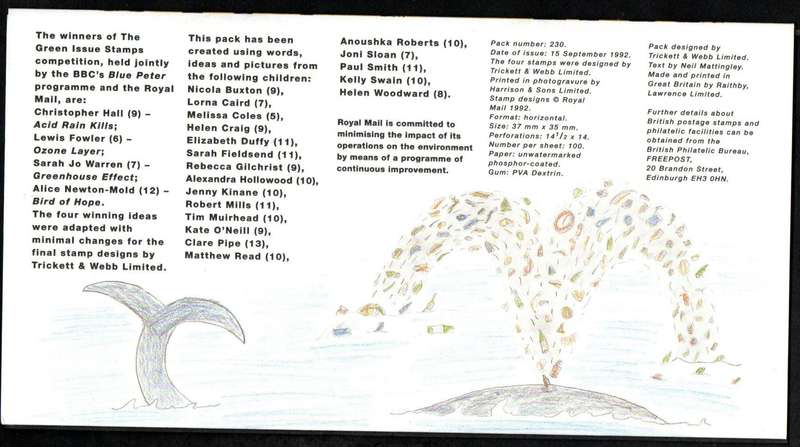 The winners of The
Green Issue Stamps
competition, held jointly
by the BBC's Blue Peter
programme and the Royal
Mail, are:
Christopher Hall (9) –
Acid Rain Kills;
Lewis Fowler (6) –
Ozone Layer;
Sarah Jo Warren (7) –
Greenhouse Effect;
Alice Newton-Mold (12) –
Bird of Hope.
The four winning ideas
were adapted with
minimal changes for the
final stamp designs by
Trickett & Webb Limited.
This pack has been
created using words,
ideas and pictures from
the following children:
Nicola Buxton (9),
Lorna Caird (7),
Melissa Coles (5),
Helen Craig (9),
Elizabeth Duffy (11),
Sarah Fieldsend (11),
Rebecca Gilchrist (9),
Alexandra Hollowood (10),
Jenny Kinane (10),
Robert Mills (11),
Tim Muirhead (10),
Kate O'Neill (9),
Clare Pipe (13),
Matthew Read (10),
Anoushka Roberts (10),
Joni Sloan (7),
Paul Smith (11),
Kelly Swain (10),
Helen Woodward (8).
Royal Mail is committed to
minimising the impact of its
operations on the environment
by means of a programme of
continuous improvement.
Pack number: 230.
Date of issue: 15 September 1992.
The four stamps were designed by
Trickett & Webb Limited.
Printed in photogravure by
Harrison & Sons Limited.
Stamp designs © Royal
Mail 1992.
Format: horizontal.
Size: 37 mm x 35 mm.
Perforations: 14½ x 14.
Number per sheet: 100.
Paper: unwatermarked
phosphor-coated.
Gum: PVA Dextrin.
Pack designed by
Trickett & Webb Limited.
Text by Neil Mattingley.
Made and printed in
Great Britain by Raithby,
Lawrence Limited.
Further details about
British postage stamps and
philatelic facilities can be
obtained from the
British Philatelic Bureau,
FREEPOST,
20 Brandon Street,
Edinburgh EH3 0HN.